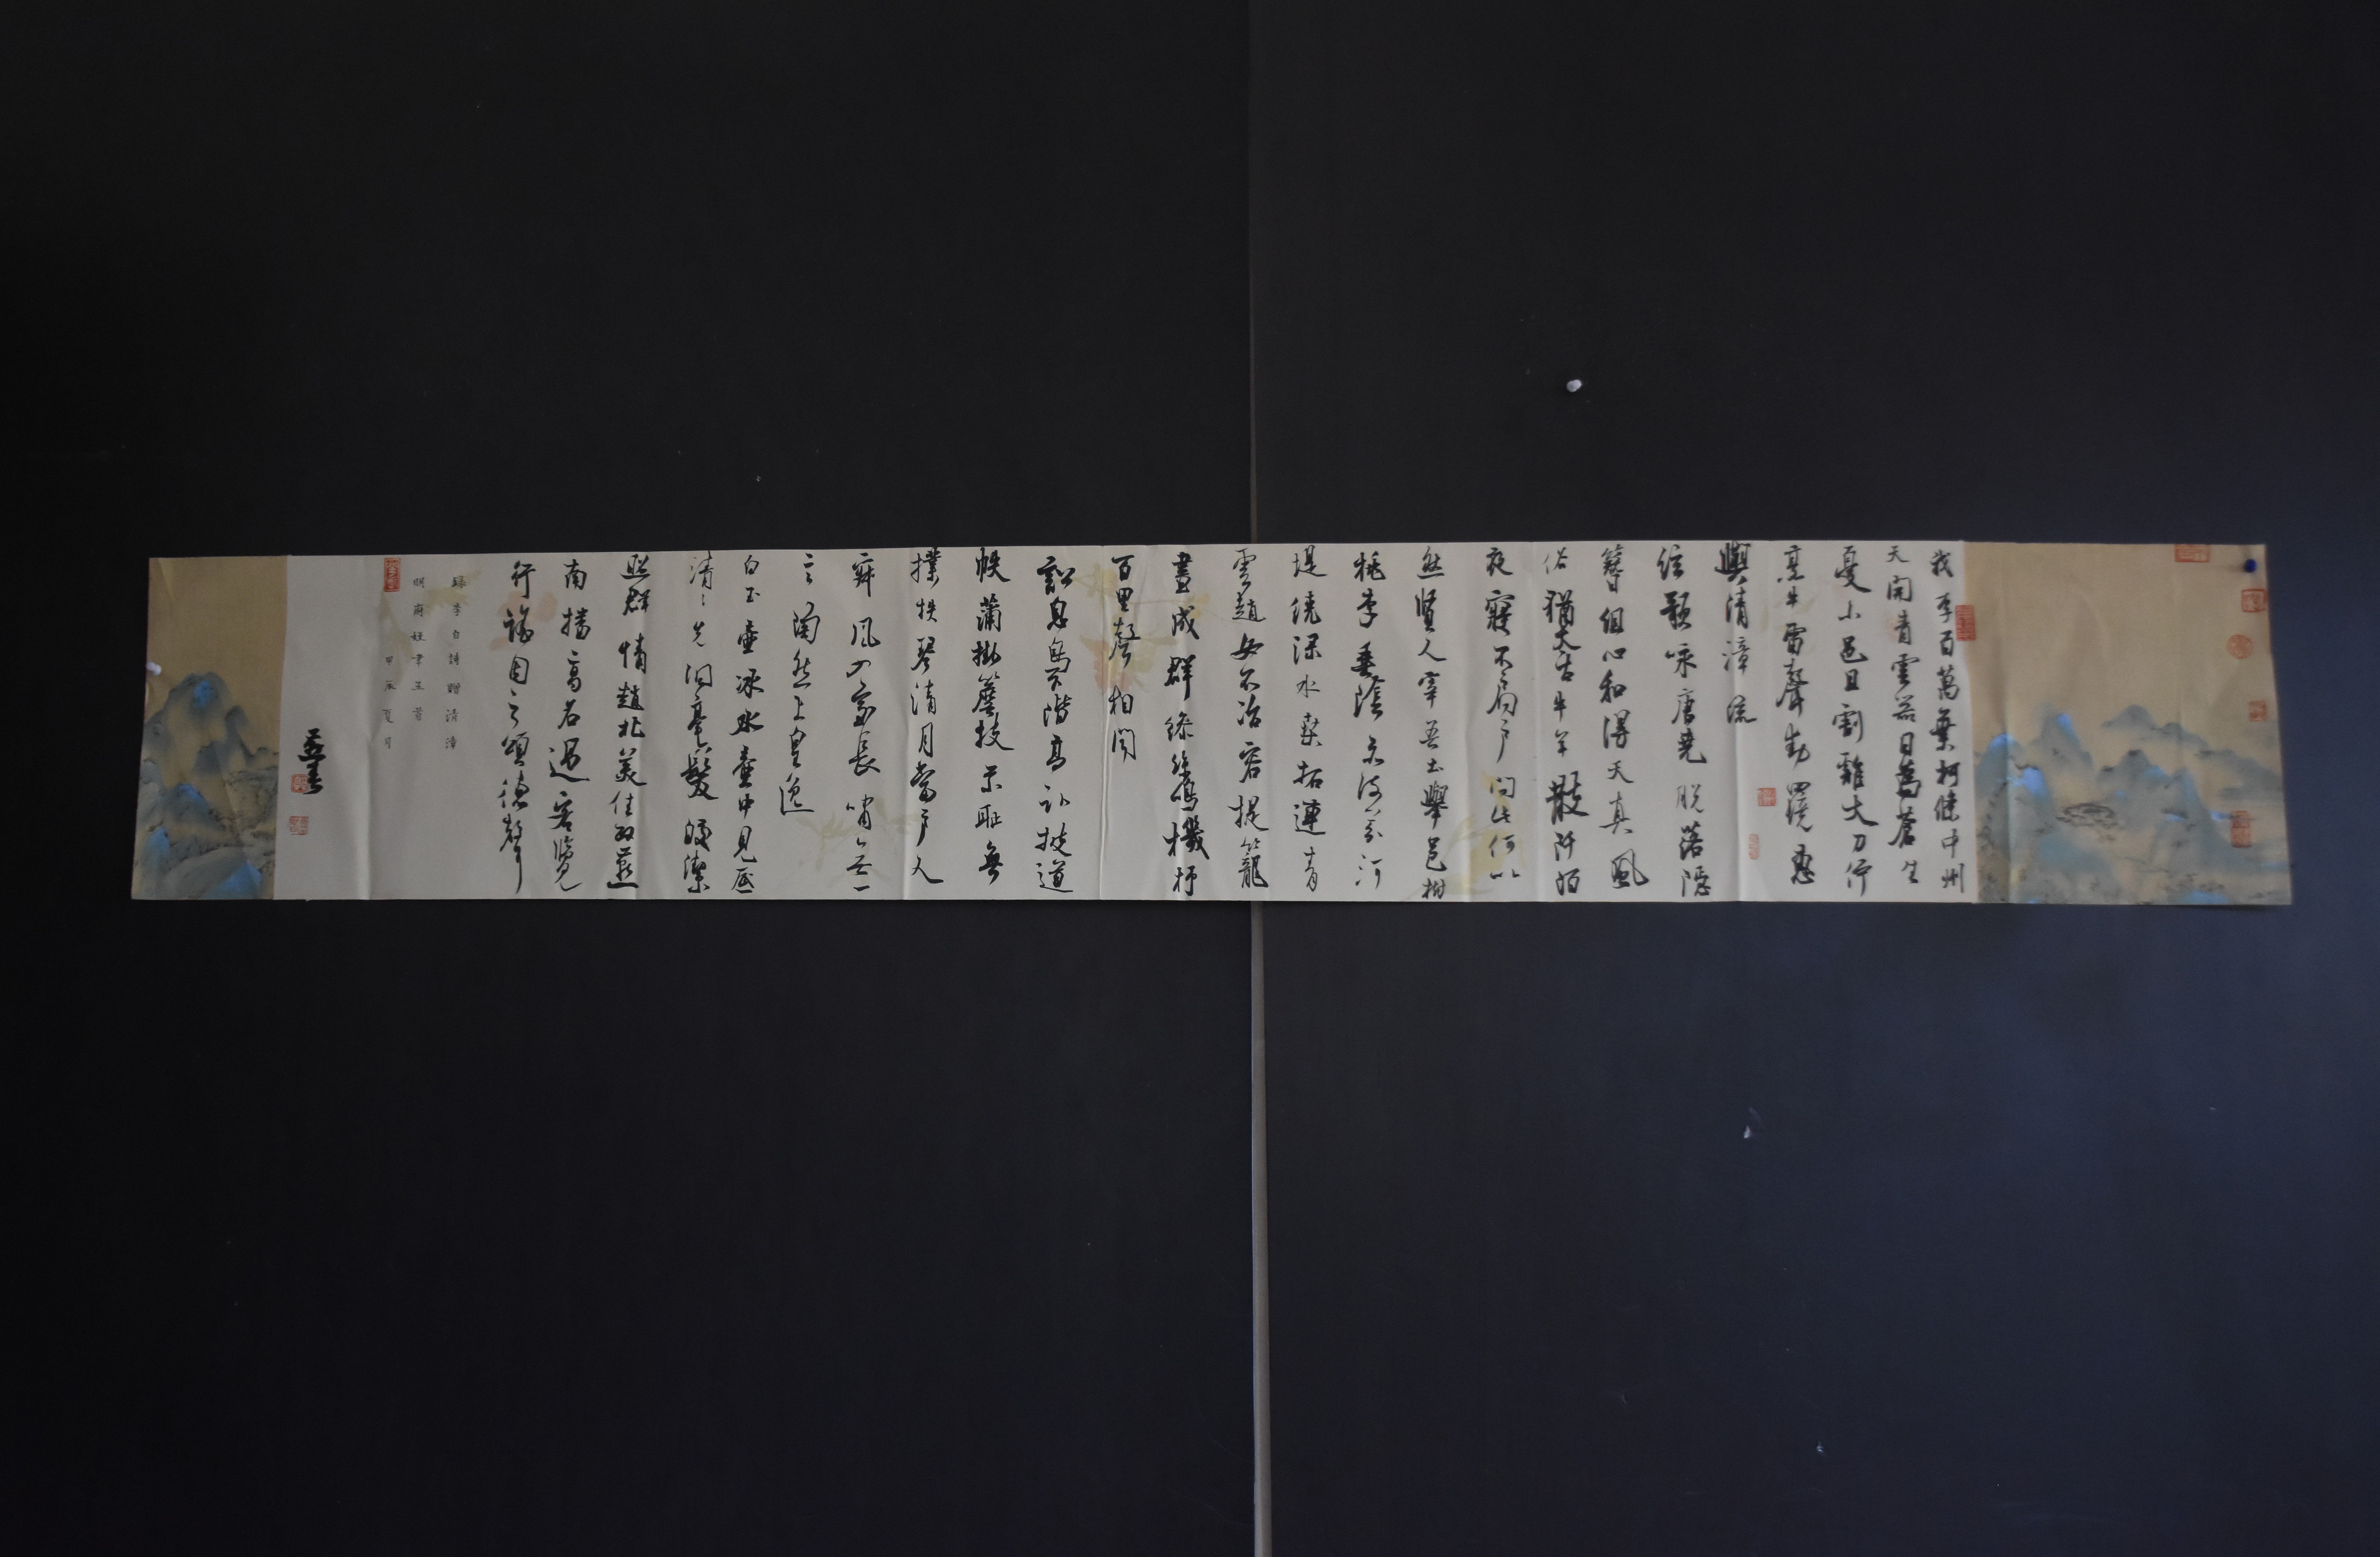 我李百萬葉柯條中州
天開青雲器日為蒼生
憂小邑且割雞大刀佇
烹牛雷聲動四境惠
與清漳流
弦歌咏唐堯脫落隱
簪組心和得天真風
俗猶太古牛羊散阡陌
夜寢不扃戶問此何以
然賢人宰吾土舉邑樹
桃李垂陰亦流芬河
堤繞綠水桑柘連青
雲趙女不冶容提籠
晝成群繰絲鳴機杼
百里聲相聞
訟息鳥下階高臥披道
帙蒲鞭掛簷枝示恥無
撲抶琴清月當戶人
寂風入室長嘯無一
言陶然上皇逸
白玉壺冰水壺中見底
清清光洞毫髮皎潔
照群情趙北美佳政燕
南播高名過客覽
行謠因之頌德聲
錄李白詩贈清漳
明府姪聿
甲辰夏月